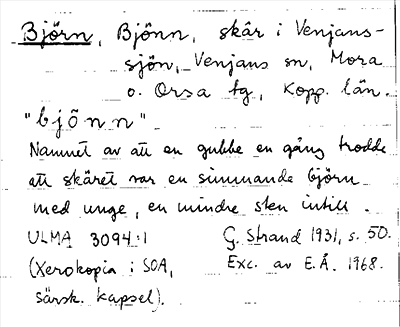 Björn, Bjönn, skär i Venjans-
sjön, Venjans sn, Mora
o. Orsa tg, Kopp. län.
"bjö̃nn"
Namnet av att en gubbe en gång trodde
att skäret var en simmande björn
med unge, en mindre sten intill.
ULMA 3094:1 G. Strand 1931, s. 50.
(Xerokopia i SOA, Exc. av E.Å. 1968.
särsk. kapsel).